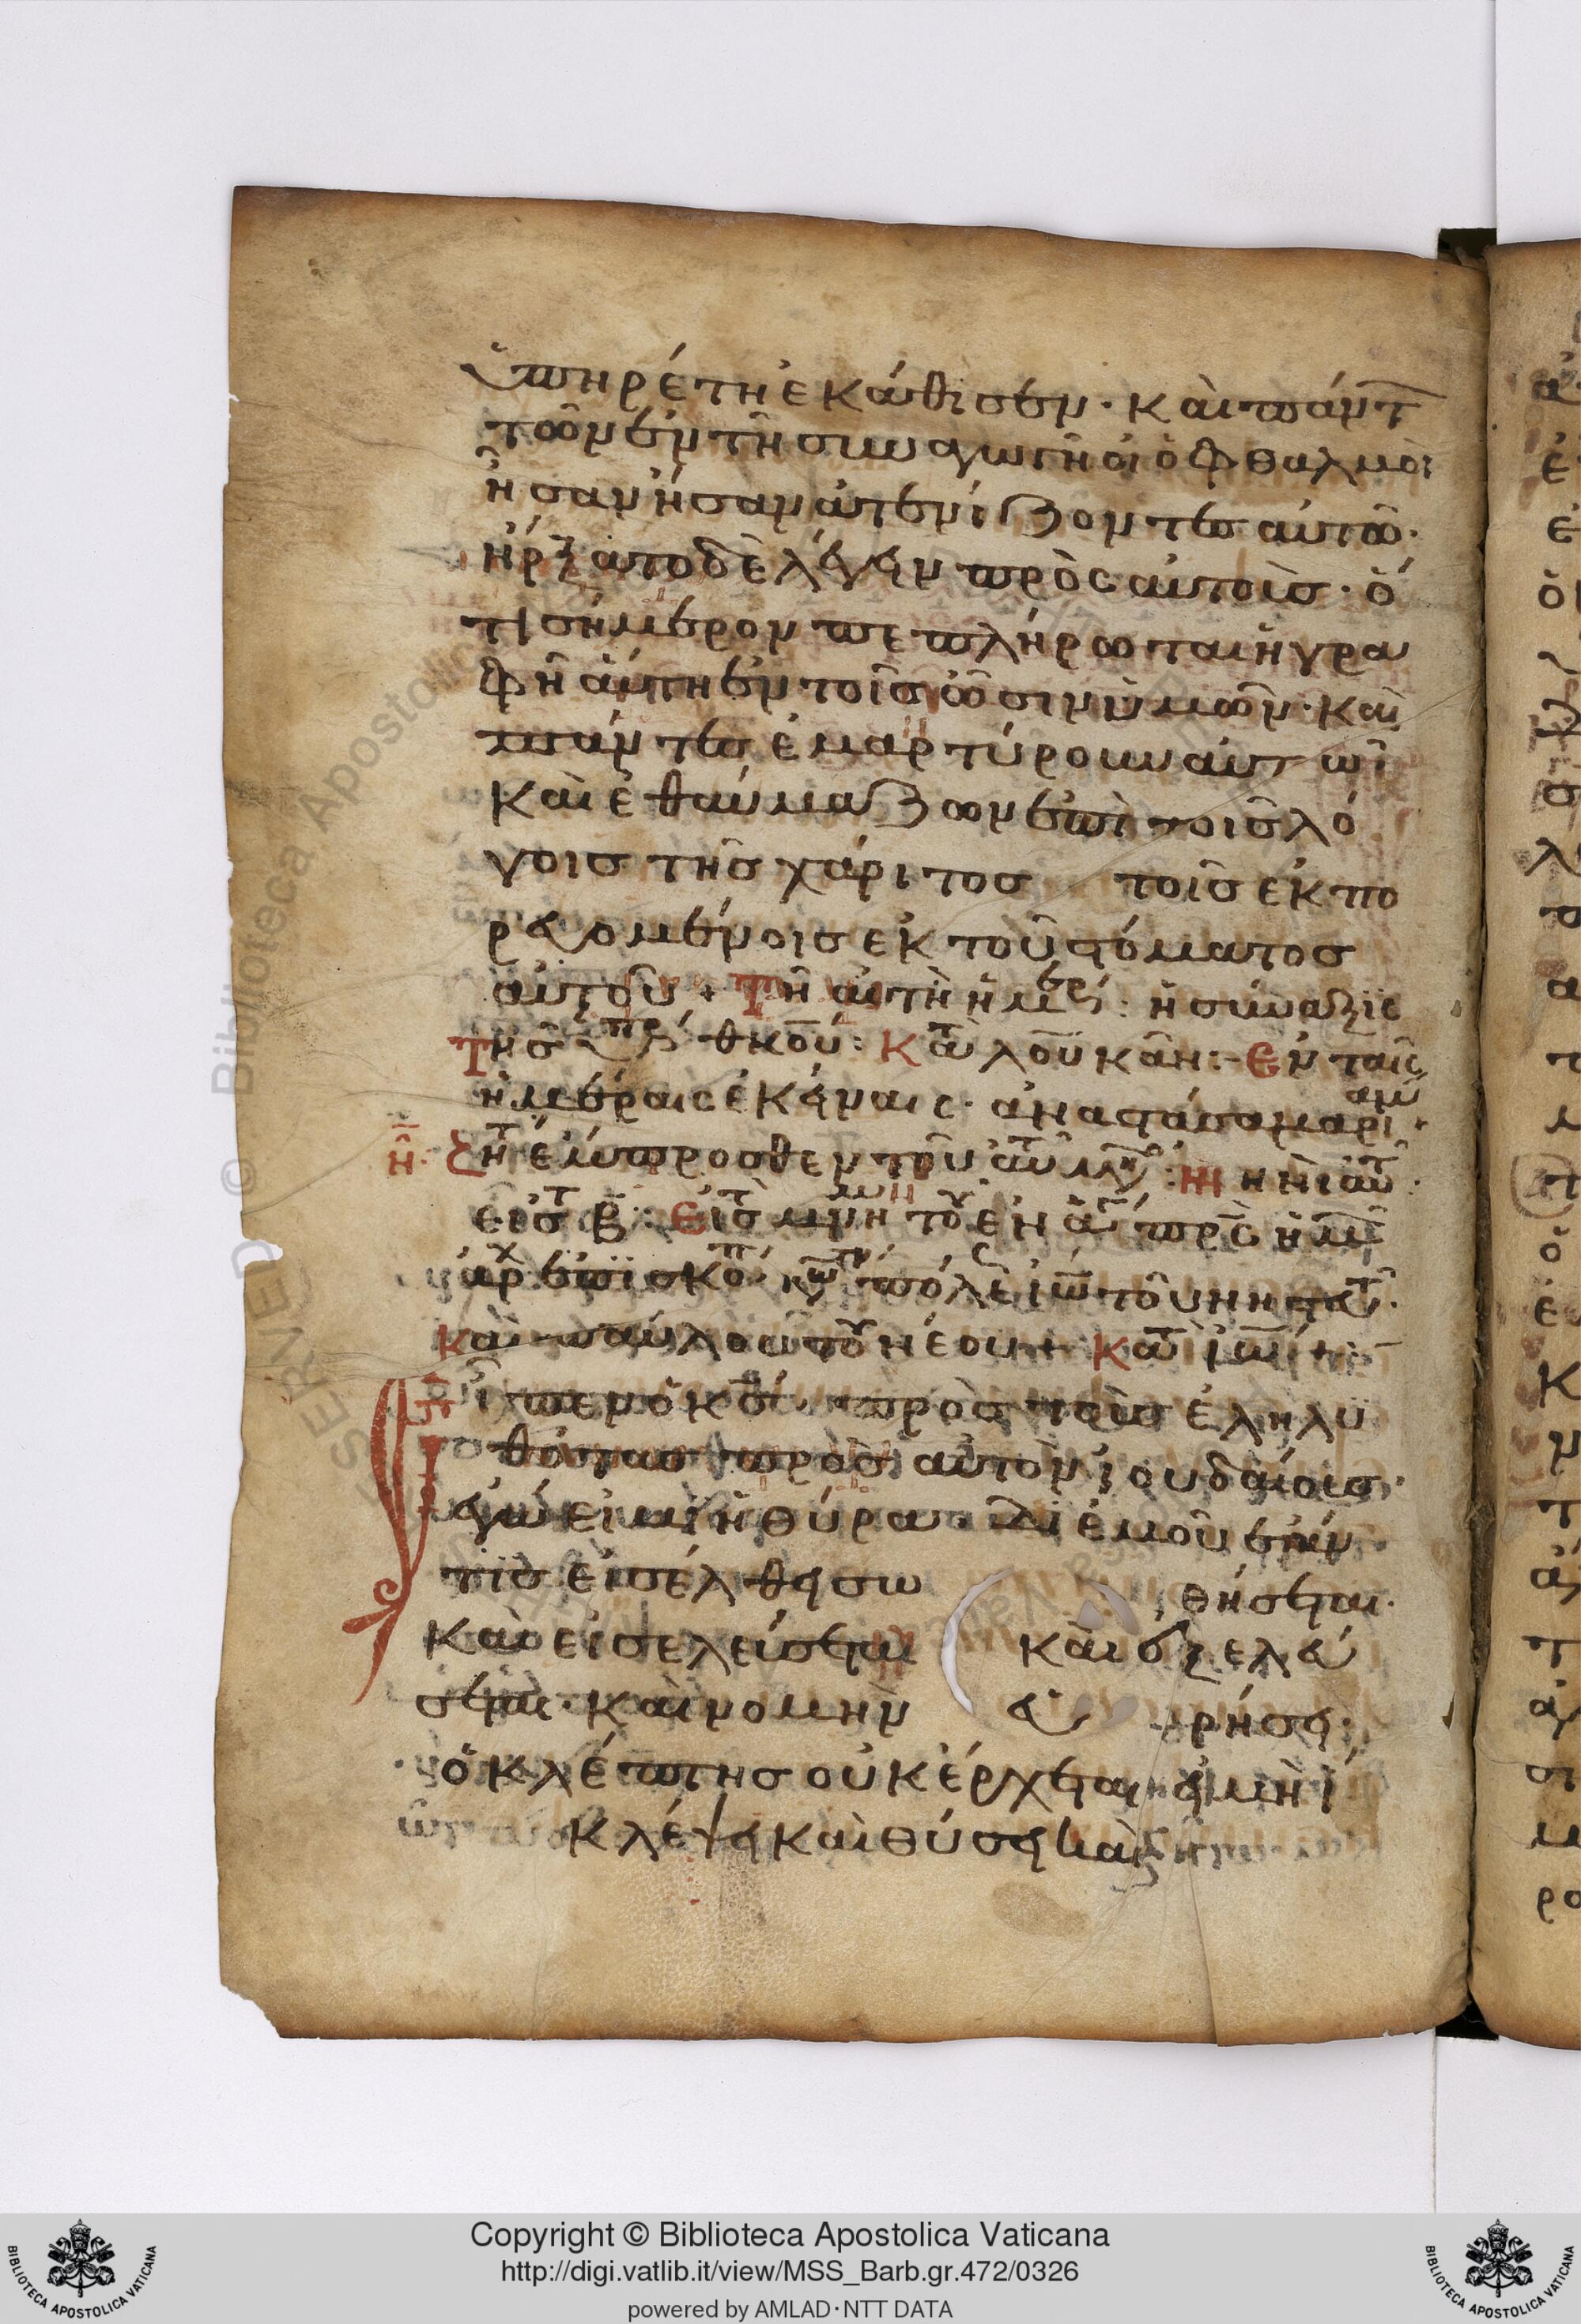 ὑπηρέτη ἐκάθισεν· καὶ πάντ
των ἐν τῇ συναγωγῇ οἱ ὀφθαλμοὶ
ἦσαν ἦσαν ἀτενίζοντες αὐτῶ·
ἤρξατο δὲ λέγειν πρὸς αὐτοὺς· ὅ
τι σήμερον πεπλήρωται ἡ γρα
φὴ αὕτη ἐν τοῖς ὠσὶν ὑμῶν· καὶ
πάντες ἐμαρτύρουν αὐτωῖ
καὶ ἐθαύμαζων ἐπὶ τοῖς λό
γοις τῆς χάριτος τοῖς ἐκπο
ρευομένοις ἐκ τοῦ στόματος
αὐτοῦ + Τῆ αὐτῆ ἡμερ: ἡ σύναξις
Τῆς ὑπρ θκου: Κατ λουκᾶν:- Εν ταῖς
ἡμέραις ἐκείναις· ἀναστάσα μαριαμ·
ἔμπροσθεν τοῦ
εἰς Β: Εἰς μνη του ἐν ἁγ πρς ἡμ
ἀρχ ἐπισκο κων πόλε ἰω τοῦ νηστ·
καὶ παύλου τοῦ νέου + Κατ ἰω +
Εἶπεν ὁ κς πρὸς τοὺς ἐληλυ
θότας πρὸς αὐτὸν ἰουδαίους·
ἐγώ εἰμι ἡ θύρα· δι ἐμοῦ ἐάν
τις εἰσέλθει σω θήσεται·
καὶ εἰσελεύσεται καὶ ἐξελεύ
σεται· καὶ νομὴν εὑ ρήσει·
ὁ κλέπτης οὐκ ἔρχεται εἰ μὴ ἵ
κλέψει καὶ θύσει καὶ
Copyright © Biblioteca Apostolica Vaticana
http://digi.vatlib.it/view/MSS_Barb.gr.472/0326
powered by AMLAD·NTT DATA
BIBLIOTECA APOSTOLICA VATICANA
BIBLIOTECA APOSTOLICA VATICANA